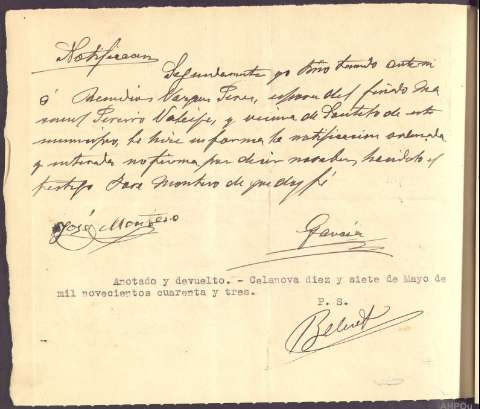 Notificacion
Seguidamente yo Srio teniendo ante mi
á Remedios Vazquez Perez, esposa del finado Ma
nuel Pereiro Valeije, y vecina de de este
municipio, le hice en forma la notificacion ordenada
y enterada no firma por decir no saber, haciendolo el
testigo José Montero de que doy fé
José Montero
García
Anotado y devuelto. - Celanova diez y siete de Mayo de
mil novecientos cuarenta y tres.
P. S.
AHPOu